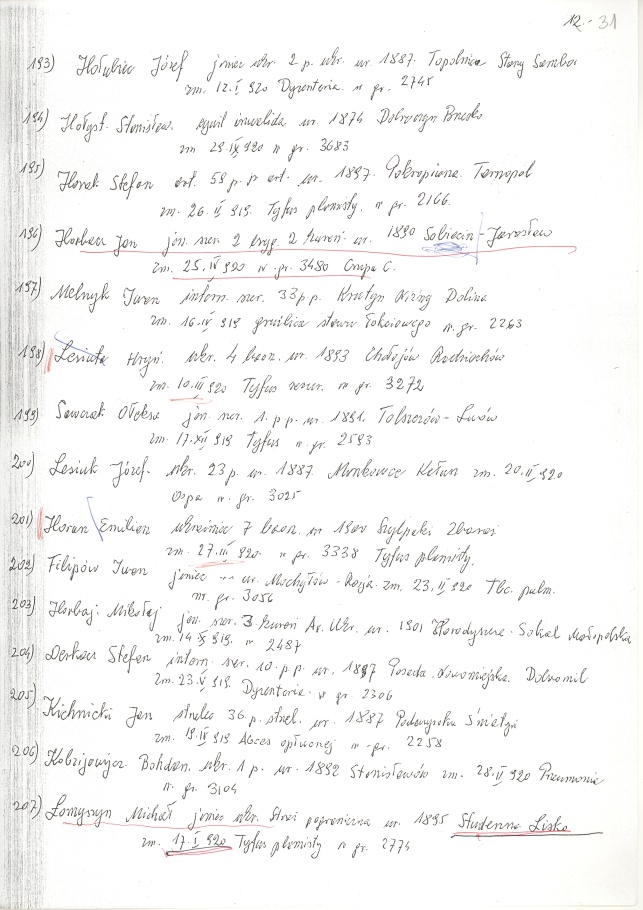 12.- 31
193) Hołubiec Józef jeniec ukr. 2 p. ukr. ur. 1887. Topolnica Stary Sambor
zm. 12.I 920 Dyzenteria n gr. 2745
194) Hołyst. Stanisław. cywil inwalida ur. 1874
zm 29.IX 920 n gr. 3683
195) Horak Stefan art. 59 p.p art. ur. 1897. Pokropiwna Tarnopol
zm. 26.II 919. Tyfus plamisty. n gr. 2166.
196) Horbacz Jan jön. szer. 2 bryg. 2 kureń ur. 1890 Sobiecin - Jarosław
zm. 25.IV 920 n gr. 3480 Grupa C.
197) Melnyk Iwan intern. szer. 33 p.p. Krutyn Dolina
zm. 16.IV 919 gruźlica stawu łokciowego n. gr. 2263
198) Lesiuta Hryń. ukr. 4 baon. ur. 1893 Chołojów Radziechów
zm. 10.III 920 Tyfus n gr. 3272
199) Sawczak Ołeksa jön. szer. 1. p.p. ur. 1891. - Lwów
zm. 17.XII 919 Tyfus n gr. 2593
200) Lesiuk Józef. ukr. 23 p. ur. 1887 zm. 20.II 920
Ospa n. gr. 3025
201) Horan Emilian ukrainiec 7 baon. ur 1900 Szylpaki Zbaraż
zm. 27.III 920. n gr. 3338 Tyfus plamisty.
202) Filipów Iwan jeniec -"- ur. - Rosja. zm. 23.II 920 Tbc. pulm.
nr. gr. 3056
203) Horbaj. Mikołaj jön. szer. 3 kureń Ar. Ukr. ur. 1901 Horodyszcze - Sokal Małopolska
zm. 14 X 919. n 2487
204) Derkacz Stefan intern. szer. 10. p.p. ur. 1897 Posada Nowomiejska. Dobromil
zm. 23.V 919. Dyzenteria n gr. 2306
205) Kichnicki Jan strzelec 36. p. strzel. ur. 1887
zm. 19.IV 919 Absces opłucnej n gr. 2258
206) Kobzijowicz Bohdan. ukr. 1 p. ur. 1892 Stanisławów zm. 28.II 920 Pneumonia
n gr. 3104
207) Łomyszyn Michał jeniec ukr. Straż pograniczna ur. 1895 Studenne Lisko
zm. 17.I 920 Tyfus plamisty n gr. 2774